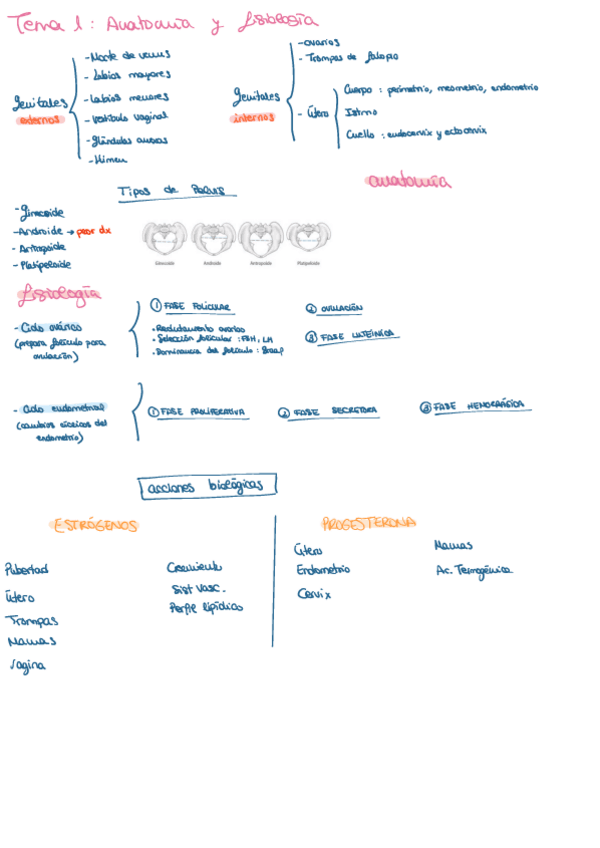 Tema 1: Anatomía y fisiología
Genitales externos
- Monte de venus
- Labios mayores
- Labios menores
- Vestíbulo vaginal
- Glándulas anexas
- Himen
Genitales internos
- Ovarios
- Trompas de falopio
- Útero
Cuerpo: perimetrio, miometrio, endometrio
Istmo
Cuello: endocervix y ectocervix
anatomía
Tipos de Pelvis
- Ginecoide
- Androide → peor dx
- Antropoide
- Platipeloide
Ginecoide Androide Antropoide Platipeloide
fisiología
- Ciclo ovárico
(prepara folículo para
ovulación)
① FASE FOLICULAR
• Reclutamiento ovarico
• Selección folicular: FSH, LH
• Dominancia del folículo:
② OVULACIÓN
③ FASE LUTEÍNICA
- Ciclo endometrial
(cambios cíclicos del
endometrio)
① FASE PROLIFERATIVA
② FASE SECRETORA
③ FASE HEMORRÁGICA
acciones biológicas
ESTRÓGENOS
Pubertad
Útero
Trompas
Mamas
Vagina
Crecimiento
Sist Vasc.
Perfil lipídico
PROGESTERONA
Útero
Endometrio
Cervix
Mamas
Ac. Termogénica